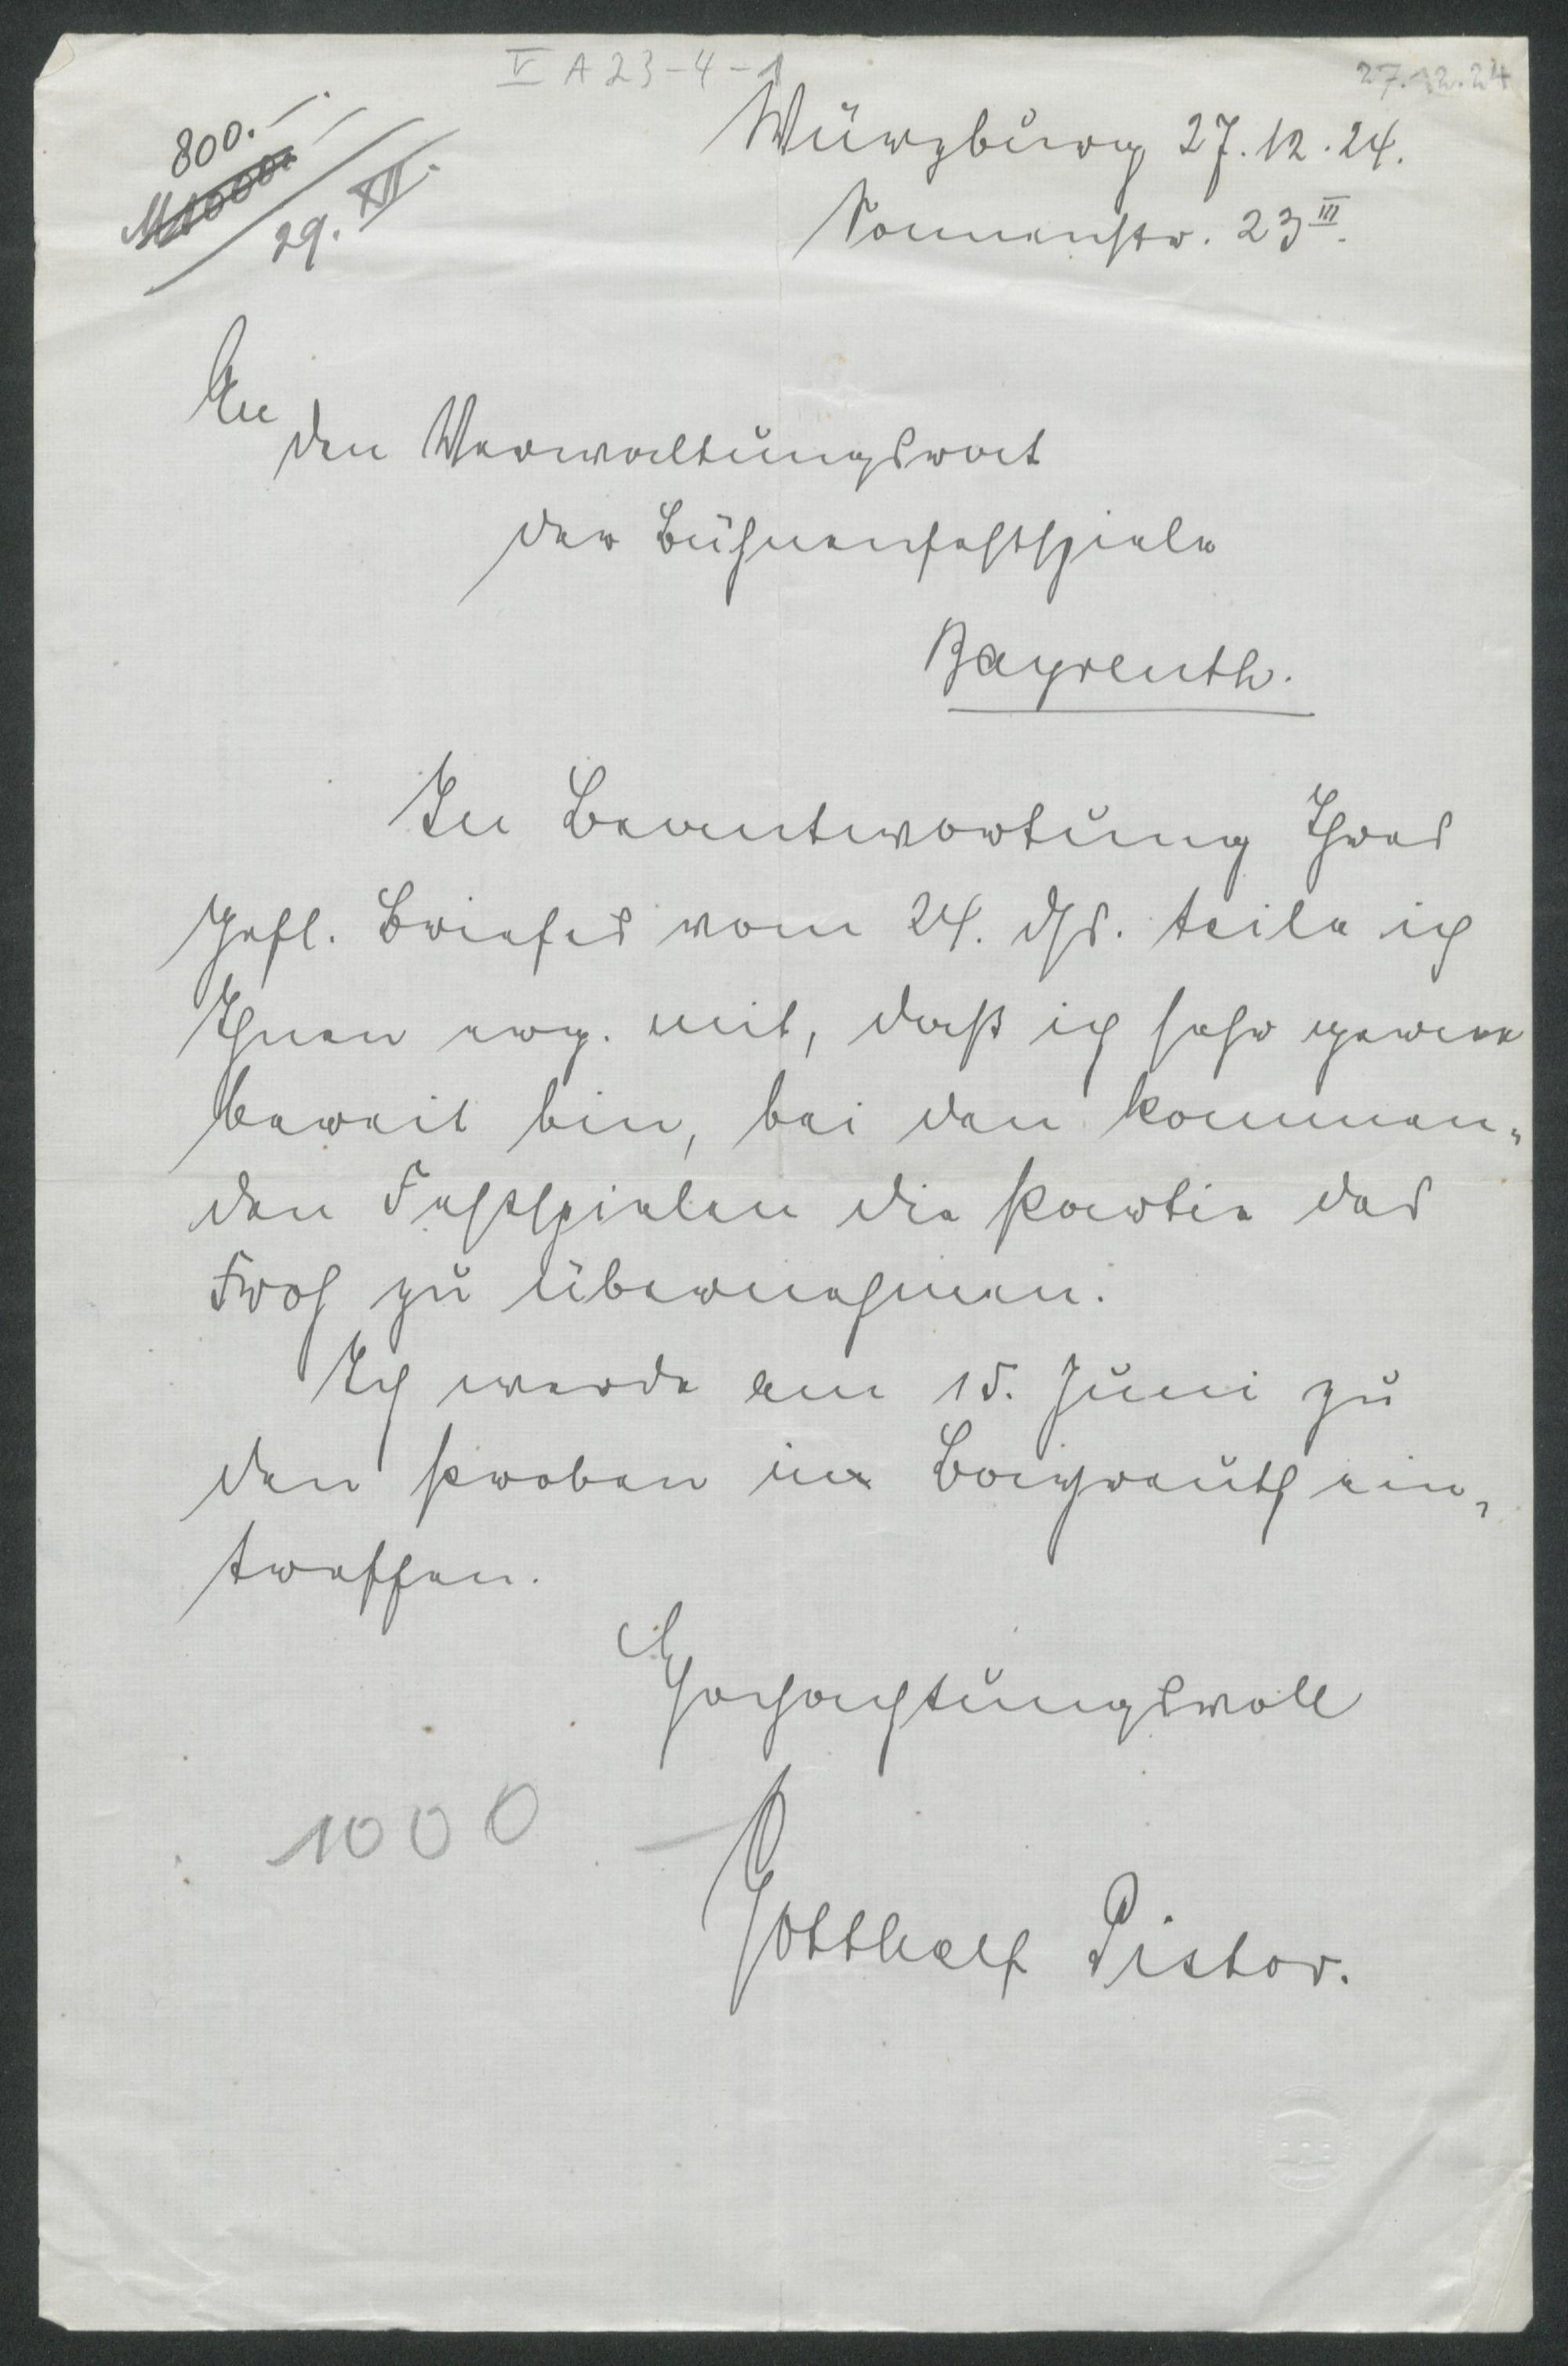 V A 23-4-1
27.12.24
800.—
M 1000.
29. XII.
Würzburg 27.12.24.
Sonnenstr. 23 III.
An
den Verwaltungsrat
der Bühnenfestspiele
Bayreuth.
In Beantwortung Ihres
gefl. Briefes vom 24. ds. teile ich
Ihnen erg. mit, daß ich sehr gerne
bereit bin, bei den kommen-
den Festspielen die Partie des
Froh zu übernehmen.
Ich werde am 15. Juni zu
den Proben in Bayreuth ein-
treffen.
Hochachtungsvoll
1000
Gotthelf Pistor.